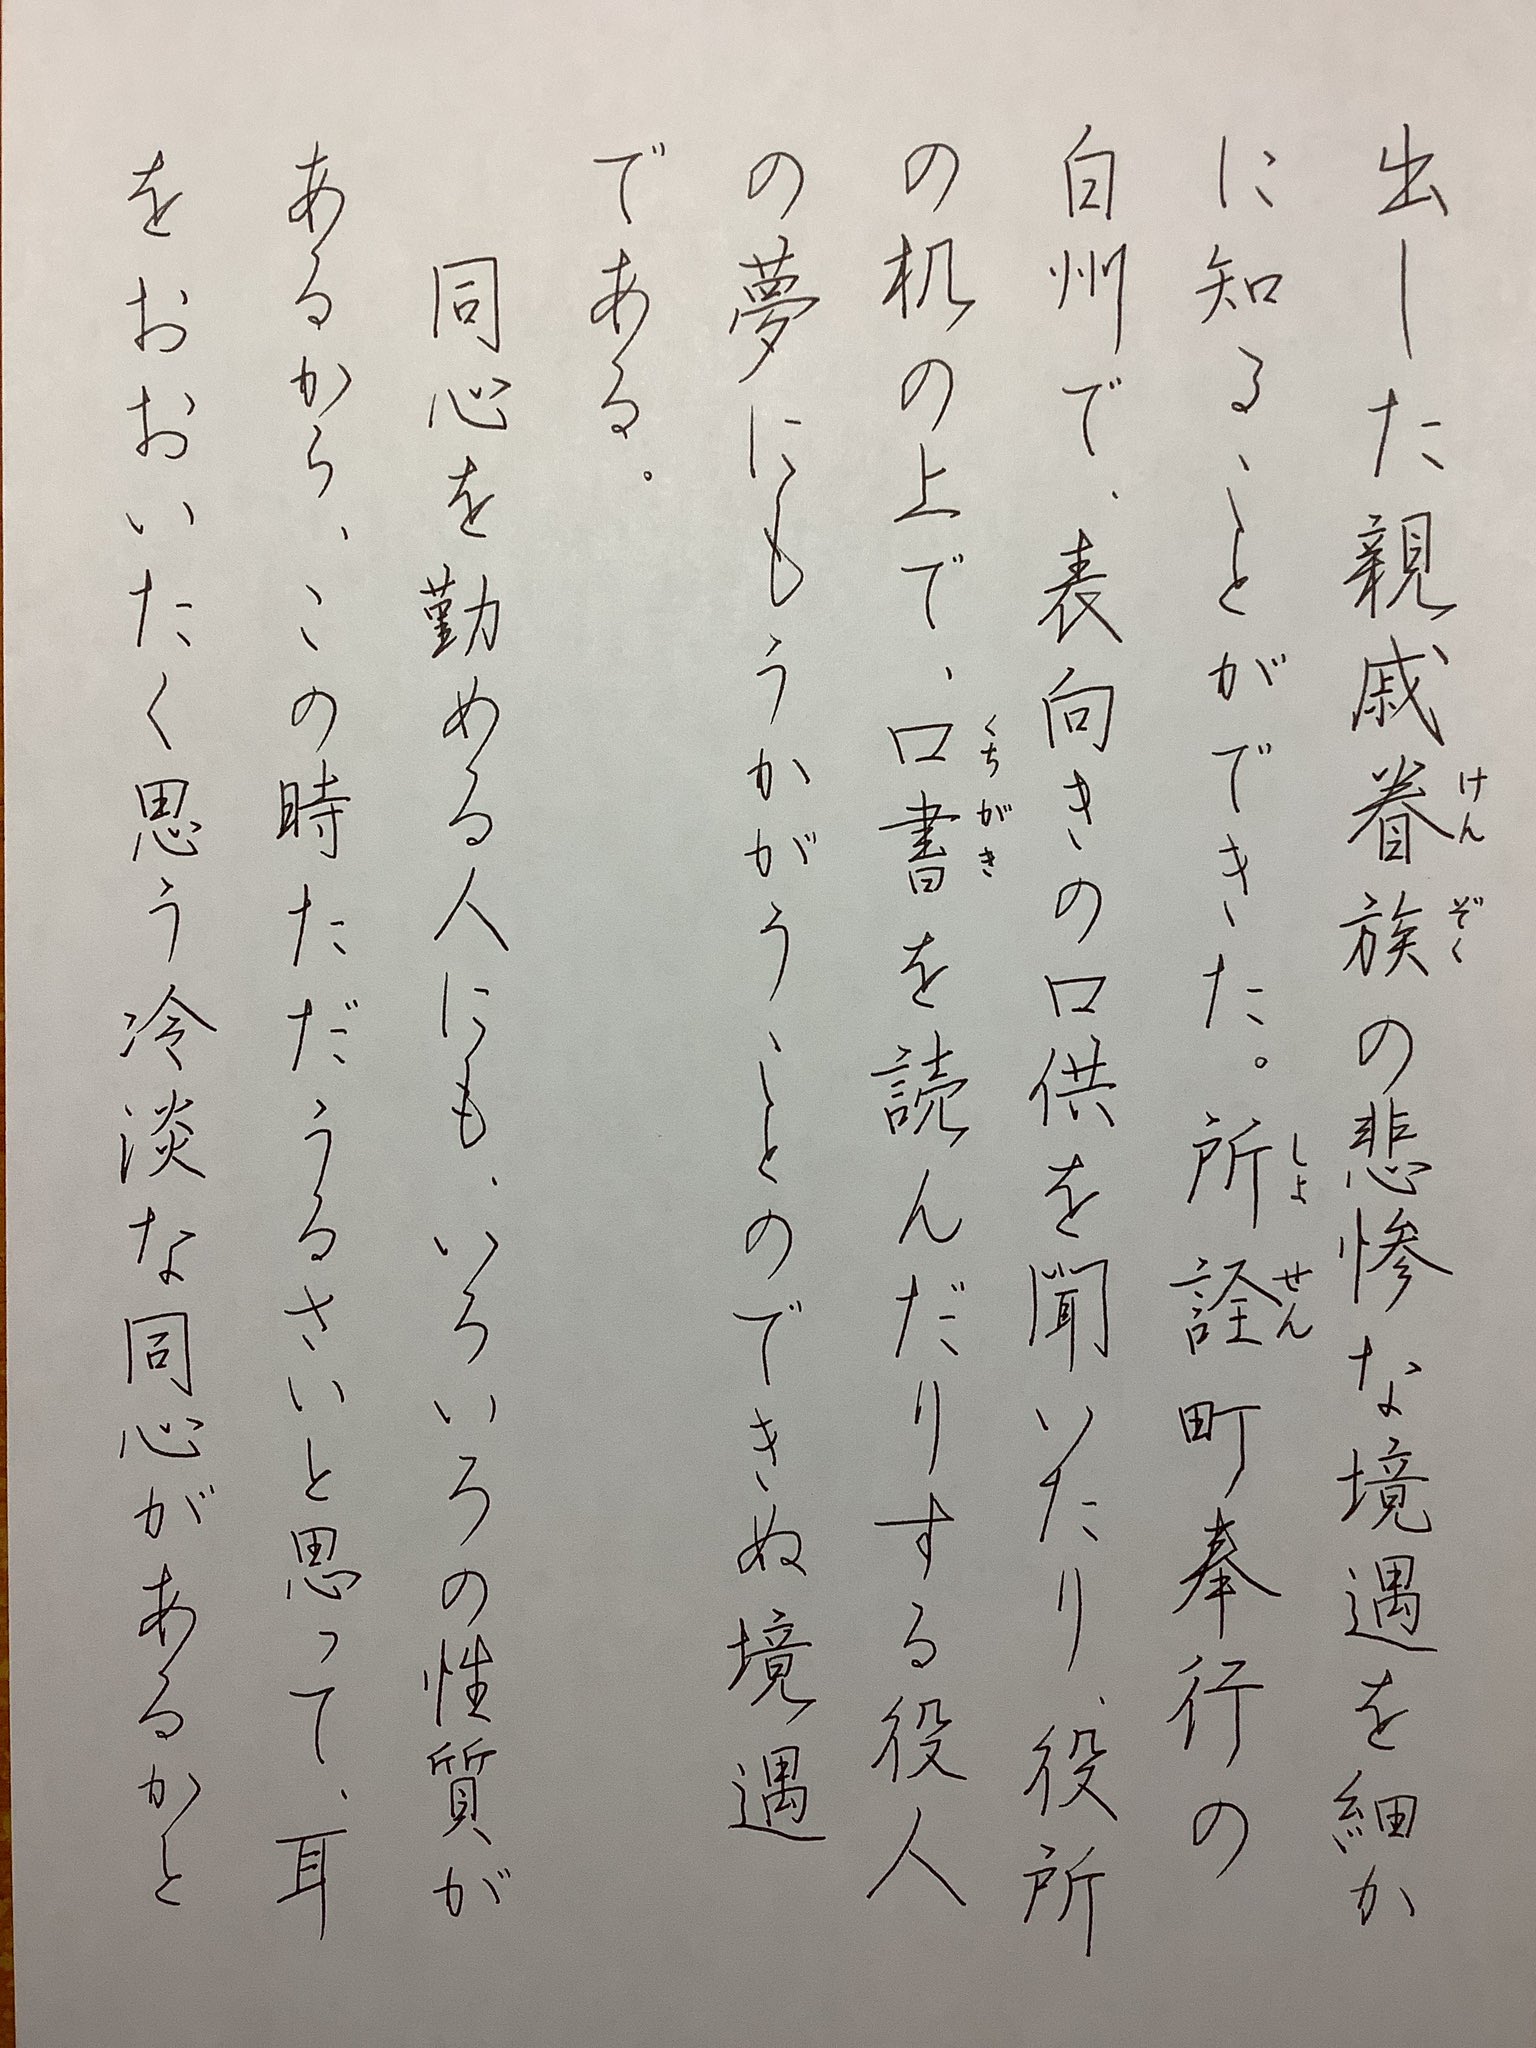 出した親戚眷族の悲惨な境遇を細か
けんぞく
に知ることができた。所詮町奉行の
しょせん
白州で、表向きの口供を聞いたり、役所
の机の上で、口書を読んだりする役人
くちがき
の夢にもうかがうことのできぬ境遇
である。
同心を勤める人にも、いろいろの性質が
あるから、この時ただうるさいと思って、耳
をおおいたく思う冷淡な同心があるかと